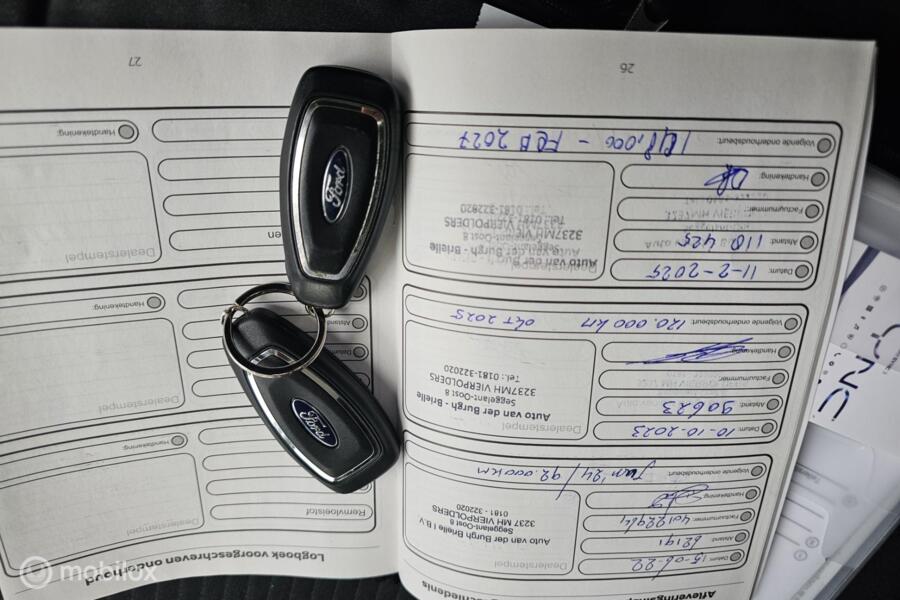 Datum: 15-06-22
Afstand: 62191
Factuurnummer:
Handtekening:
Volgende onderhoudsbeurt: Jun '24 / 92.000KM
Dealerstempel
Auto van der Burgh Brielle I B.V.
Seggelant-Oost 8
3237 MH VIERPOLDERS
0181 - 322020
Datum: 10-10-2023
Afstand: 90623
Factuurnummer:
Handtekening:
Volgende onderhoudsbeurt: 120.000 km okt 2025
Dealerstempel
Auto van der Burgh - Brielle
Seggelant-Oost 8
3237MH VIERPOLDERS
Tel.: 0181-322020
Datum: 11-2-2025
Afstand: 118425
Factuurnummer:
Handtekening:
Volgende onderhoudsbeurt: - FEB 2027
Dealerstempel
Auto van der Burgh - Brielle
Seggelant-Oost 8
3237MH VIERPOLDERS
Tel.: 0181-322020
26
Logboek voorgeschreven onderhoud
Remvloeistof
Dealerstempel
Handtekening:
Datum
Afstand
Dealerstempel
Handtekening:
Dealerstempel
Handtekening:
27
Ford
Ford
mobilox